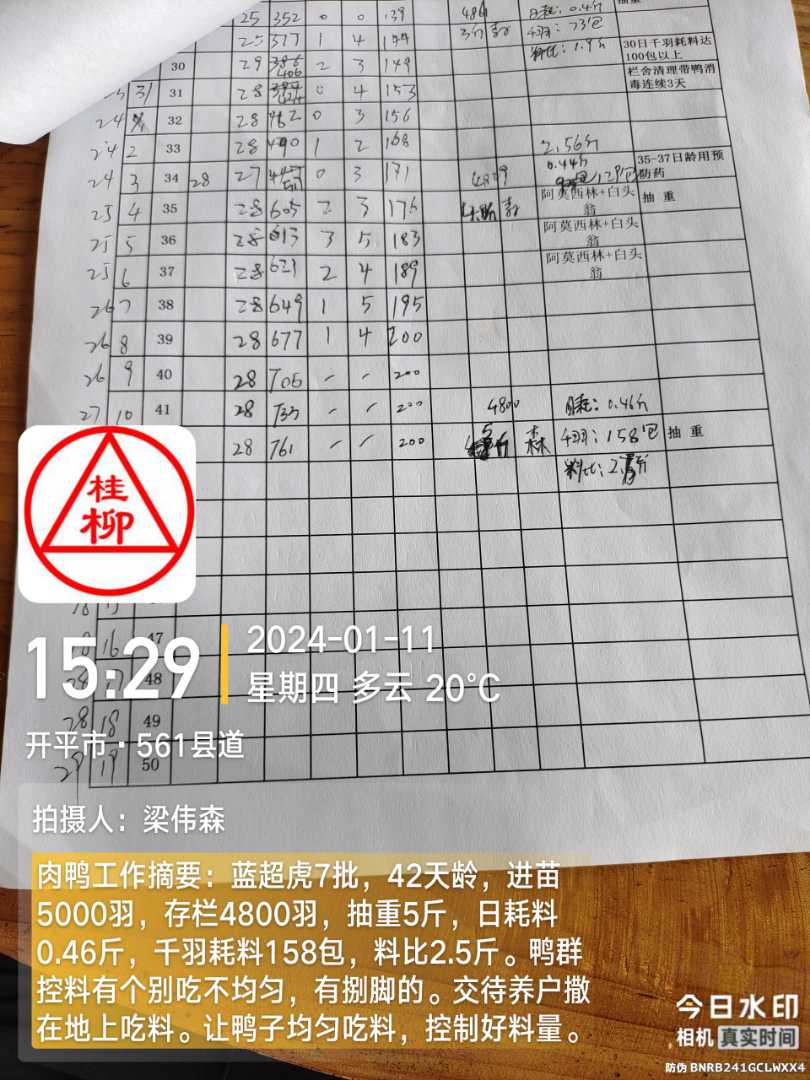 25 352 0 0 139 4861 日耗:0.4斤 抽重
25 377 1 4 144 千羽:73包
料比:1.9斤
30日千羽耗料达
100包以上
30 29 406 2 3 149
栏舍清理带鸭消
毒连续3天
25 31 31 28 0 4 153
24 32 28 0 3 156
24 2 33 28 1 2 168 2.56斤
0.44斤
24 3 34 28 27 0 3 171 4809
35-37日龄用预
防药
25 4 35 28 605 2 3 176 阿莫西林+白头
翁 抽 重
25 5 36 28 613 3 5 183 阿莫西林+白头
翁
25 6 37 28 621 2 4 189 阿莫西林+白头
翁
26 7 38 28 649 1 5 195
26 8 39 28 677 1 4 200
26 9 40 28 705 - - 200
27 10 41 28 733 - - 200 4800 日耗:0.46斤
28 761 - - 200 森 千羽:158包 抽 重
料比:
桂
柳
16 47
48
28 18 49
19 50
15:29
2024-01-11
星期四 多云 20℃
开平市·561县道
拍摄人:梁伟森
肉鸭工作摘要:蓝超虎7批,42天龄,进苗
5000羽,存栏4800羽,抽重5斤,日耗料
0.46斤,千羽耗料158包,料比2.5斤。鸭群
控料有个别吃不均匀,有捌脚的。交待养户撒
在地上吃料。让鸭子均匀吃料,控制好料量。
今日水印
相机 真实时间
防伪 BNRB241GCLWXX4